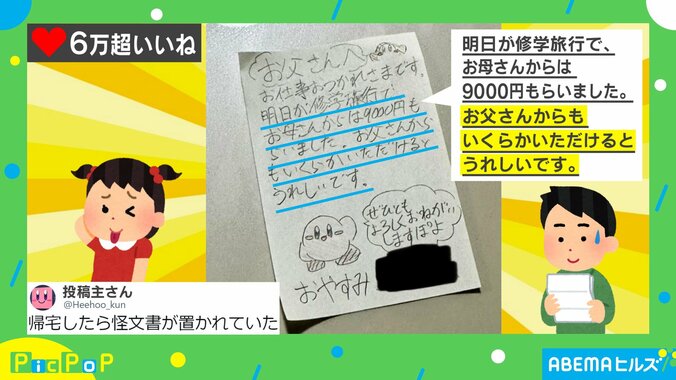 6万超いいね
お父さんへ
お仕事おつかれさまです。
明日が修学旅行で、
お母さんからは9000円も
らいました。お父さんから
もいくらかいただけると
うれしいです。
ぜひとも
よろしくおねがい
しますぽよ
おやすみ
明日が修学旅行で、
お母さんからは
9000円もらいました。
お父さんからも
いくらかいただけると
うれしいです。
投稿主さん
@Heehoo_kun
帰宅したら怪文書が置かれていた
PicPoP
ABEMAヒルズ